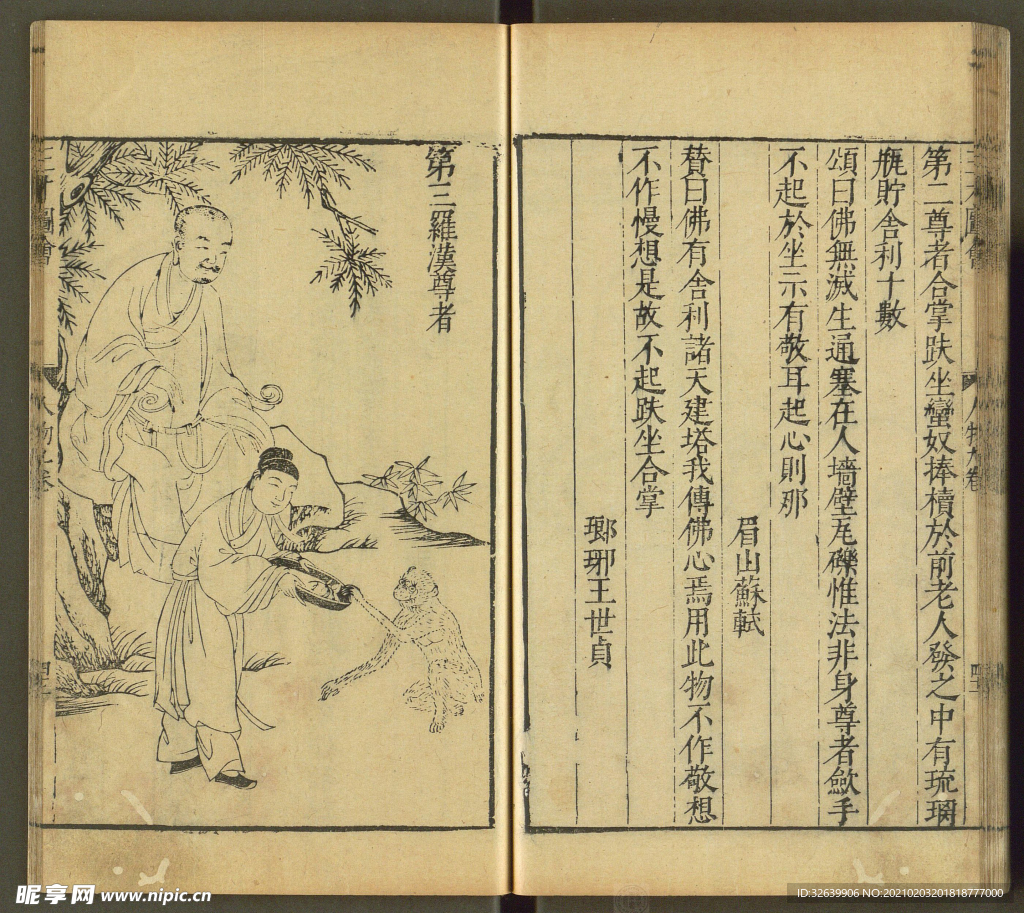 三才圖會
人物九卷
第二尊者合掌趺坐蠻奴捧櫝於前老人發之中有琉璃
瓶貯舍利十數
頌曰佛無滅生通塞在人墻壁瓦礫惟法非身尊者歛手
不起於坐示有敬耳起心則那
眉山蘇軾
賛曰佛有舍利諸天建塔我傳佛心焉用此物不作敬想
不作慢想是故不起趺坐合掌
瑯琊王世貞
第三羅漢尊者
三才圖會
人物九卷
昵享网 www.nipic.cn
ID:32639906 NO:20210203201818777000